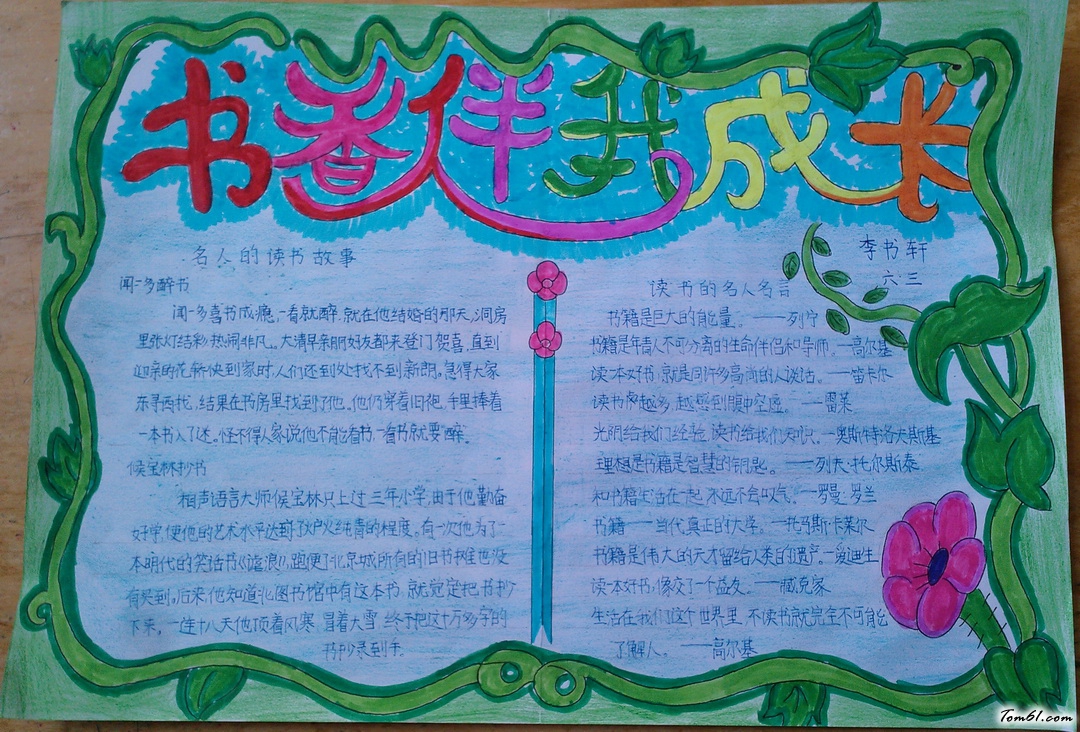 书香伴我成长
名人的读书故事
闻一多醉书
闻一多喜书成瘾,一看就醉,就在他结婚的那天,洞房
里张灯结彩,热闹非凡。大清早亲朋好友都来登门贺喜,直到
迎亲的花轿快到家时,人们还到处找不到新郎。急得大家
东寻西找,结果在书房里找到了他。他仍穿着旧袍,手里捧着
一本书入了迷。怪不得人家说他不能看书,一看书就要"醉"。
候宝林抄书
相声语言大师候宝林只上过三年小学,由于他勤奋
好学,使他的艺术水平达到了炉火纯青的程度。有一次他为了一
本明代的笑话书《谑浪》,跑便了北京城所有的旧书摊也没
有买到。后来,他知道北图书馆中有这本书,就觉定把书抄
下来。一连十八天,他顶着风寒,冒着大雪,终于把这十万多字的
书抄录到手。
李书轩
六·三
读书的名人名言
书籍是巨大的能量。——列宁
书籍是年青人不可分离的生命伴侣和导师。——高尔基
读一本好书,就是同许多高尚的人谈话。——笛卡尔
读书越多,越感到腹中空虚。——雪莱
光阴给我们经验,读书给我们知识。——奥斯特洛夫斯基
理想是书籍是智慧的钥匙。——列夫·托尔斯泰
和书籍生活在一起,永远不会叹气。——罗曼·罗兰
书籍——当代真正的大学。——托马斯·卡莱尔
书籍是伟大的天才留给人类的遗产。——爱迪生
读一本好书,像交了一个益友。——臧克家
生活在我们这个世界里,不读书就完全不可能
了解人。——高尔基
Tom61.com